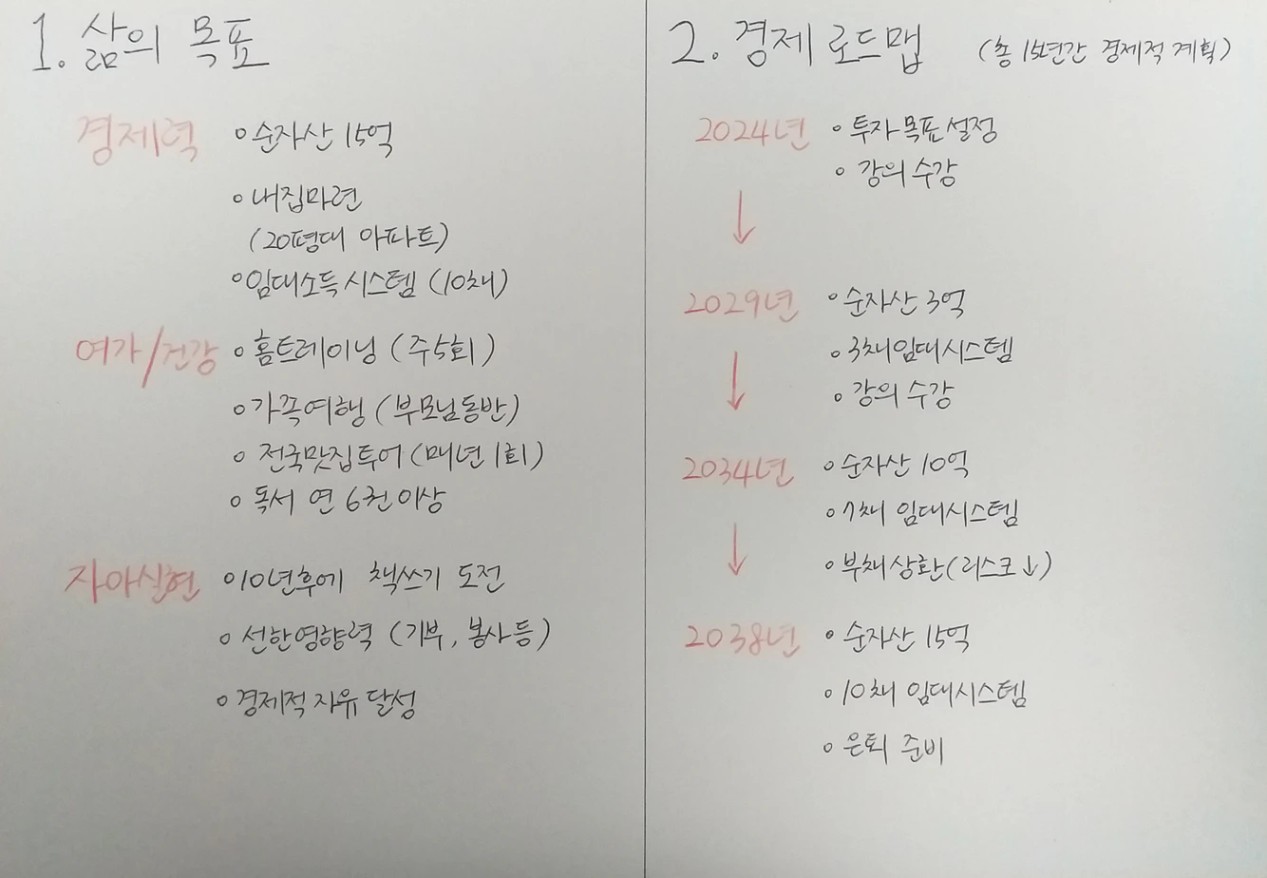 1. 삶의 목표
경제력 ∘순자산 15억
∘내집마련
(20평대 아파트)
∘임대소득시스템 (10채)
여가/건강 ∘홈트레이닝 (주5회)
∘가족여행 (부모님동반)
∘전국맛집투어 (매년 1회)
∘독서 연 6권이상
자아실현 ∘10년후에 책쓰기 도전
∘선한영향력 (기부, 봉사등)
∘경제적 자유 달성
2. 경제 로드맵 (총 15년간 경제적 계획)
2024년 ∘투자목표설정
∘강의수강
↓
2029년 ∘순자산 3억
∘3채임대시스템
∘강의 수강
↓
2034년 ∘순자산 10억
∘7채 임대시스템
∘부채상환(리스크↓)
↓
2038년 ∘순자산 15억
∘10채 임대시스템
∘은퇴 준비